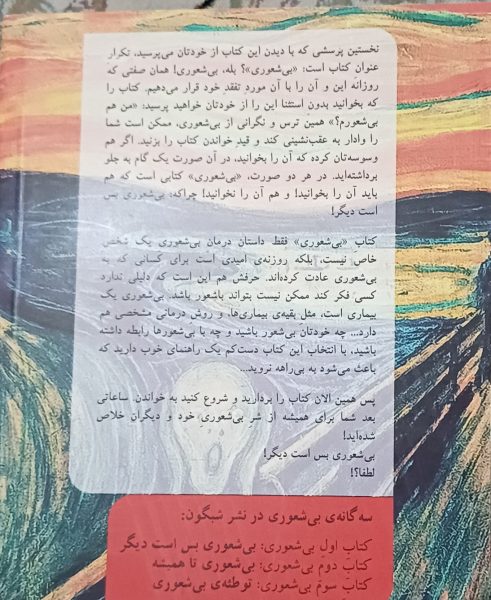 نخستین پرسشی که با دیدن این کتاب از خودتان می‌پرسید، تکرار
عنوان کتاب است: «بی‌شعوری»؟ بله، بی‌شعوری! همان صفتی که
روزانه این و آن را با آن مورد تفقدِ خود قرار می‌دهیم. کتاب را
که بخوانید بدون استثنا این را از خودتان خواهید پرسید: «من هم
بی‌شعورم؟» همین ترس و نگرانی از بی‌شعوری، ممکن است شما
را وادار به عقب‌نشینی کند و قید خواندن کتاب را بزنید. اگر هم
وسوسه‌تان کرده که آن را بخوانید، در آن صورت یک گام به جلو
برداشته‌اید. در هر دو صورت، «بی‌شعوری» کتابی است که هم
باید آن را بخوانید! و هم آن را نخوانید! چراکه: بی‌شعوری بس
است دیگر!
کتاب «بی‌شعوری» فقط داستان درمان بی‌شعوری یک شخص
خاص نیست، بلکه روزنه‌ی امیدی است برای کسانی که به
بی‌شعوری عادت کرده‌اند. حرفش هم این است که دلیلی ندارد
کسی فکر کند ممکن نیست بتواند باشعور باشد. بی‌شعوری یک
بیماری است، مثل بقیه‌ی بیماری‌ها، و روش درمانی مشخصی هم
دارد... چه خودتان بی‌شعور باشید و چه با بی‌شعورها رابطه داشته
باشید، با انتخاب این کتاب دست‌کم یک راهنمای خوب دارید که
باعث می‌شود به بی‌راهه نروید...
پس همین الان کتاب را بردارید و شروع کنید به خواندن. ساعاتی
بعد شما برای همیشه از شرِ بی‌شعوریِ خود و دیگران خلاص
شده‌اید!
بی‌شعوری بس است دیگر!
لطفا؟!
سه گانه‌ی بی‌شعوری در نشر شبگون:
کتاب اول بی‌شعوری: بی‌شعوری بس است دیگر
کتاب دوم بی‌شعوری: بی‌شعوری تا همیشه
کتاب سوم بی‌شعوری: توطئه‌ی بی‌شعوری